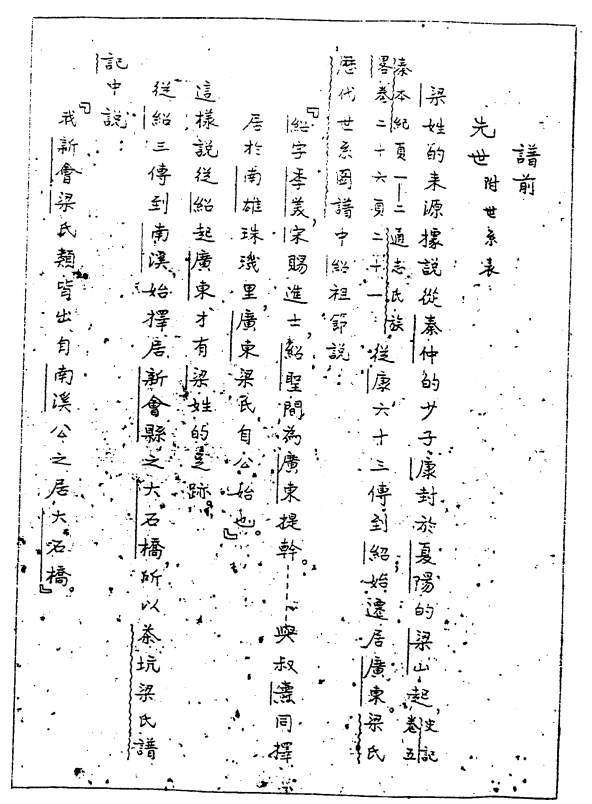 譜前
先世 附世系表
梁姓的来源據說從秦仲的少子康封於夏陽的梁山起，史記卷五
秦本紀頁一—二通志氏族畧卷二十六頁二十一：從康六十三傳到紹，始遷居廣東。梁氏
歷代世系圖譜中紹祖節說：
『紹字季美，宋賜進士，紹聖間為廣東提幹。------與叔燾同擇
居於南雄珠璣里，廣東梁氏自公始也。』
這樣說從紹起廣東才有梁姓的足跡。
從紹三傳到南溪，始擇居新會縣之大石橋，所以茶坑梁氏譜
記中說：
『我新會梁氏類皆出自南溪公之居大石橋。』